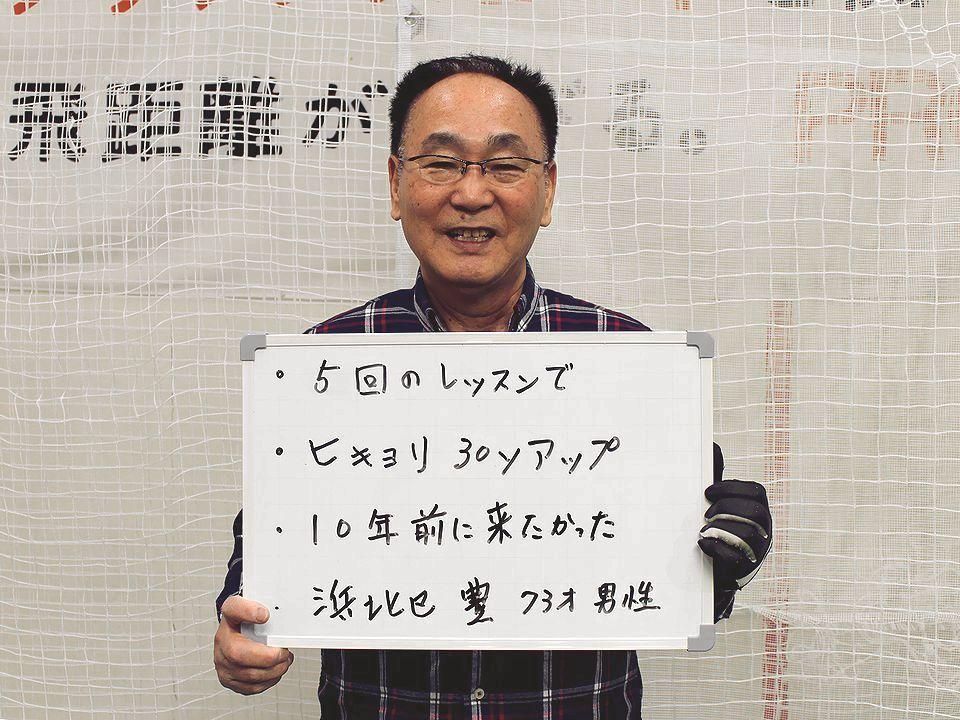 飛距離が る。
・5回のレッスンで
・ヒキョリ 30ソアップ
・10年前に来たかった
・浜北巳 豊 73才 男性